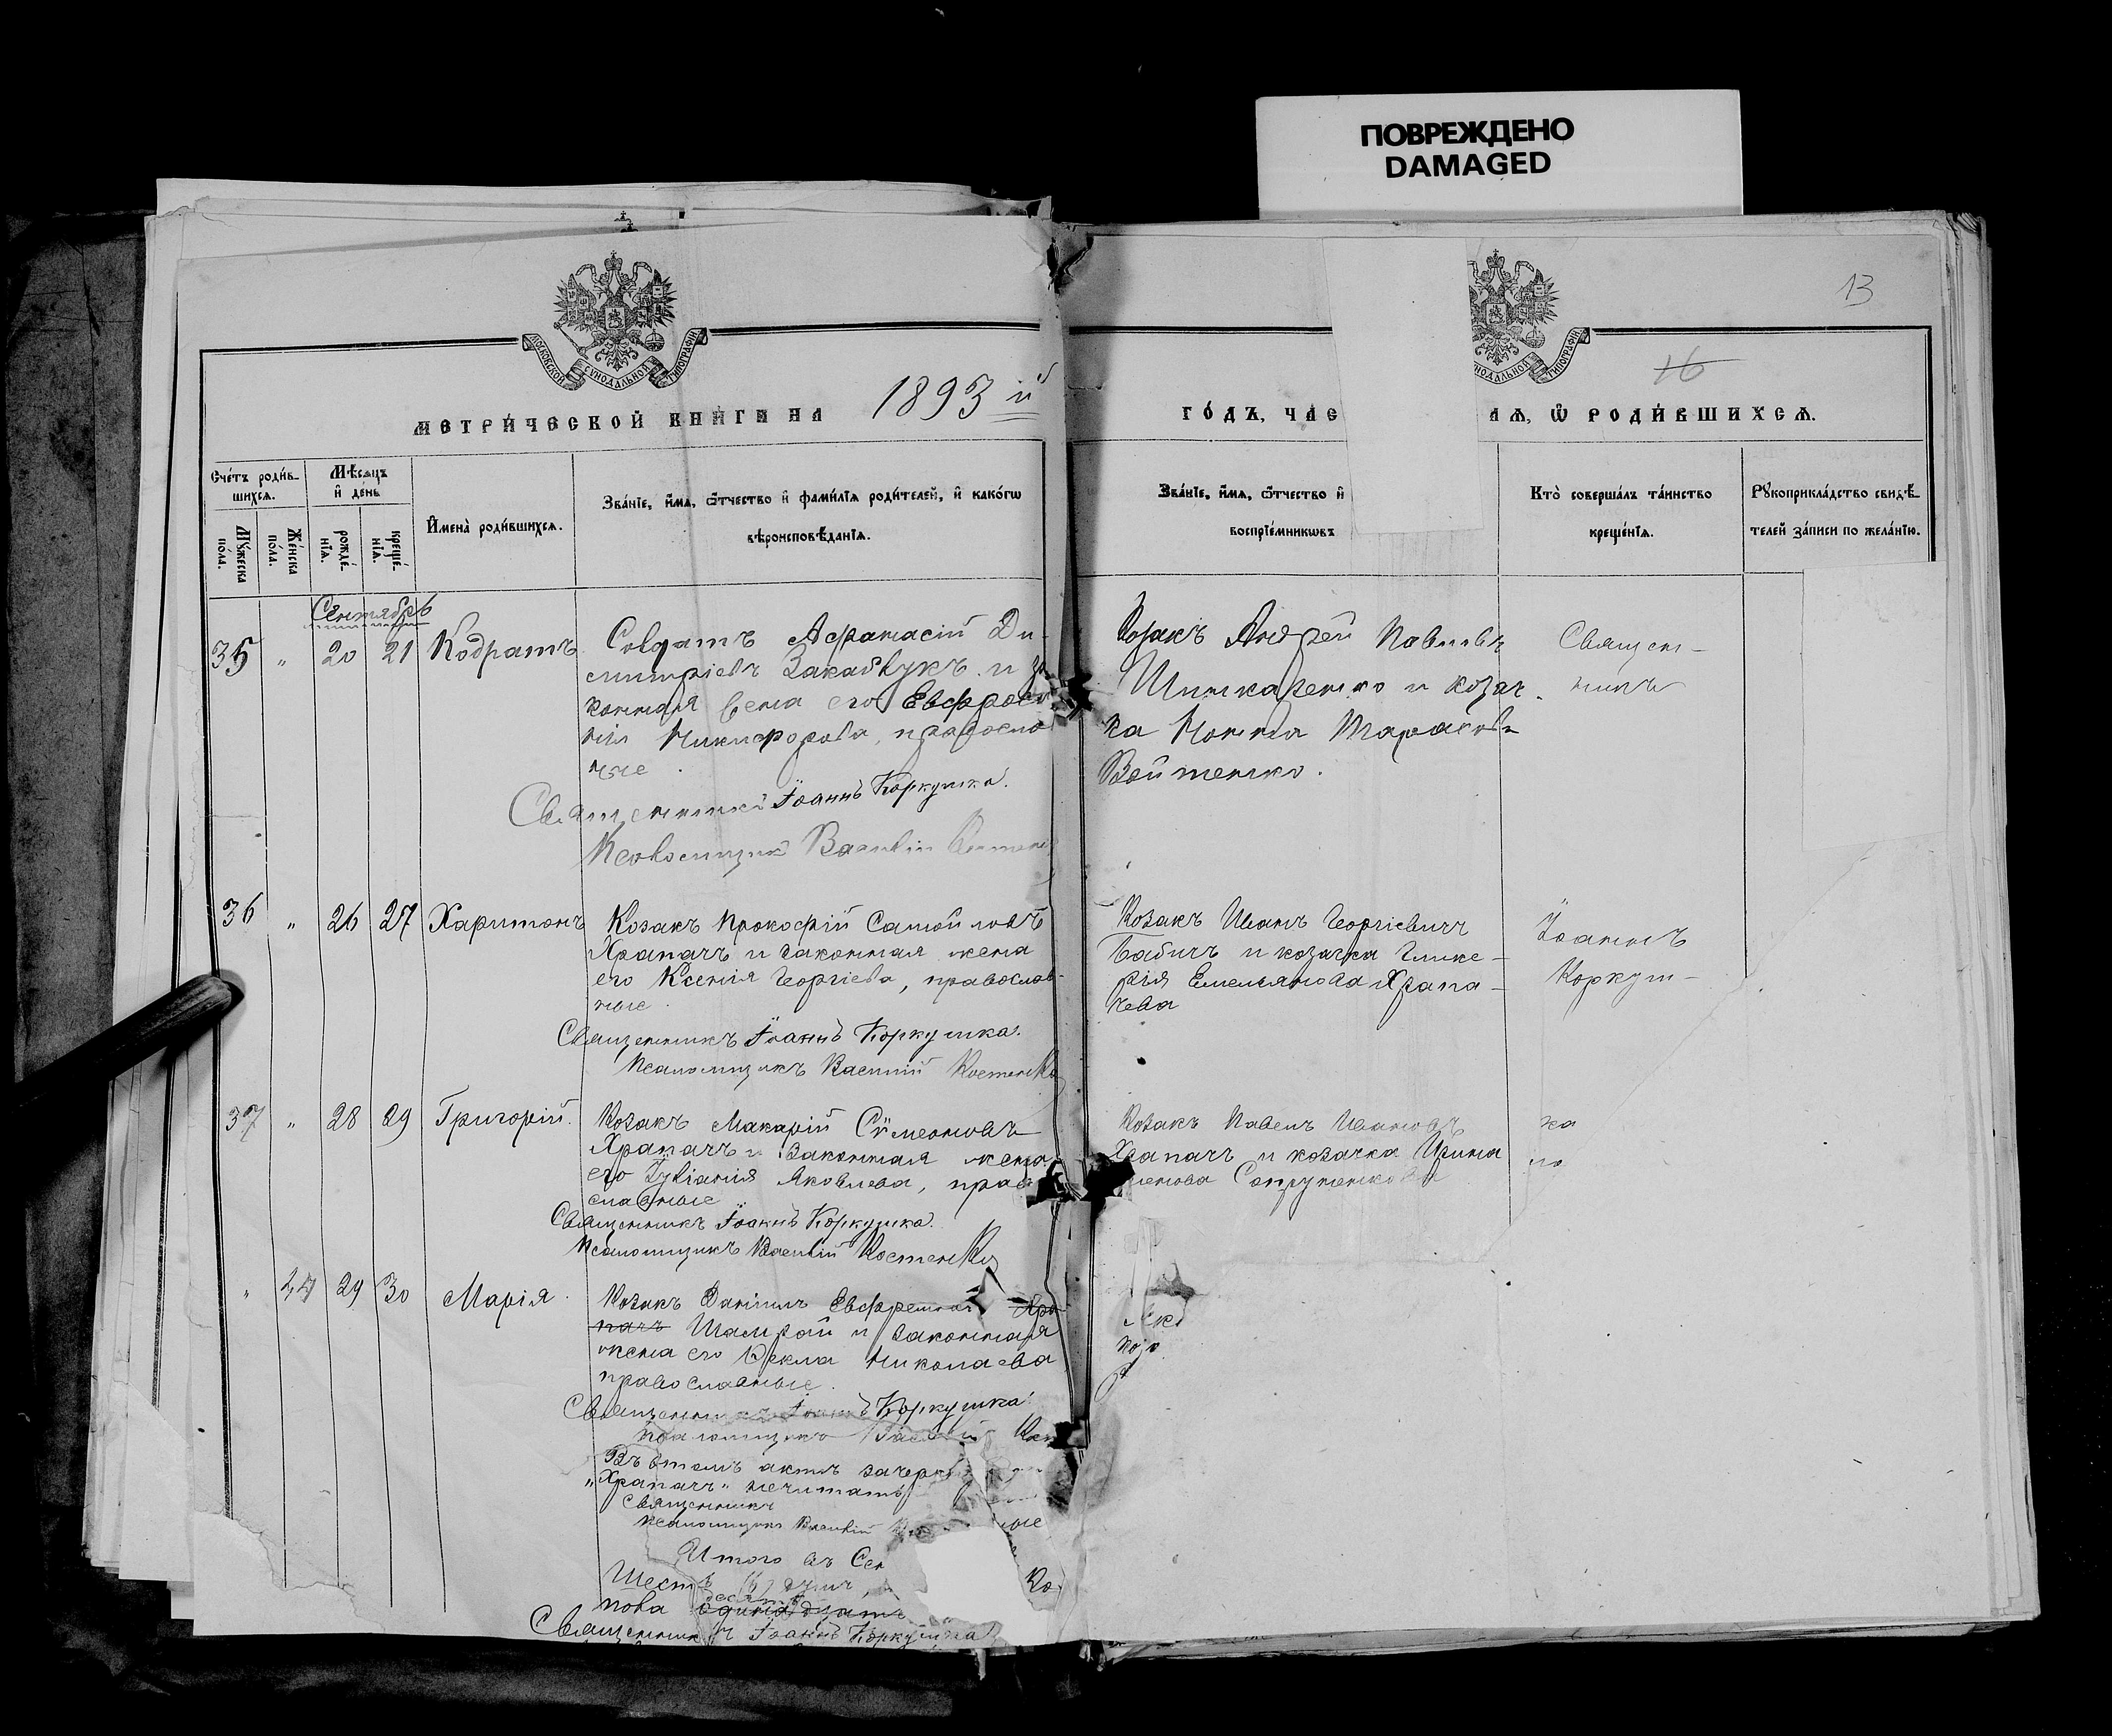 ПОВРЕЖДЕНО
DAMAGED
13
16
МОСКОВСКОЙ СУНОДАЛЬНОЙ ТИПОГРАФІИ
НОДАЛЬНОЙ ТИПОГРАФІИ
МЕТРИ́ЧЕСКОЙ КНИ́ГИ НА 1893 й
ГО́ДЪ, ЧАС АѦ, Ѡ РОДИ́ВШИХСѦ.
Сче́тъ роди́в-
шихсѧ.
Мѣсѧцъ
и҆ день
Мꙋ́жеска по́ла.
Же́нска по́ла.
рожде́-
нїѧ.
креще́-
нїѧ.
И҆мена̀ роди́вшихсѧ.
Зва́нїе, и҆́мѧ, ѻ҆́тчество и҆ фами́лїѧ роди́телей, и҆ како́гѡ
вѣроисповѣ́данїѧ.
Зва́нїе, и҆́мѧ, ѻ҆́тчество и҆
воспрїе́мникѡвъ
Кто̀ соверша́лъ та́инство
креще́нїѧ.
Рꙋкоприкла́дство свидѣ́-
телей за́писи по жела́нїю.
Сентябрь
35 " 20 21 Кодратъ
Солдатъ Афанасій Ди-
митріевъ и за
конная жена его Евфроси
нія Никифорова, правосла
ные
Священникъ Іоаннъ Коркушка.
Псаломщикъ Василій
Козакъ Андрей Павловъ
Шинкаренко и козач-
ка Тарасова
Войтенко.
Священ-
никъ
36 " 26 27 Харитонъ
Козакъ Прокофій Самойловъ
Храпачъ и законная жена
его Ксенія Георгіева, православ-
ные
Священникъ Іоаннъ Коркушка.
Псаломщикъ Василій Костенко
Козакъ Иванъ Георгіевичъ
Бабичъ и козачка Глике-
рія Емельянова Храпа-
чева
Іоаннъ
Коркуш-
37 " 28 29 Григорій.
Козакъ Макарій Сѵмеоновъ
Храпачъ и законная жена
его Іуліанія Яковлева, прав
славные
Священникъ Іоаннъ Коркушка.
Псаломщикъ Василій Костенко
Козакъ Павелъ Ивановъ
Храпачъ и козачка Ирина
ка
" 44 29 30 Марія.
Козакъ Даніилъ Хра-
пачъ Шамрай и законная
жена его Ѳекла Николаева
православные.
Священникъ Іоаннъ Коркушка
Псаломщикъ Василій Кос
Въ этомъ актѣ зачерк
"Храпачъ" нечитать
Священникъ
Псаломщикъ Василій
Итого въ Сен
Шесть (6) душ
десять
пола одинадцать
Священникъ Іоаннъ Коркушка